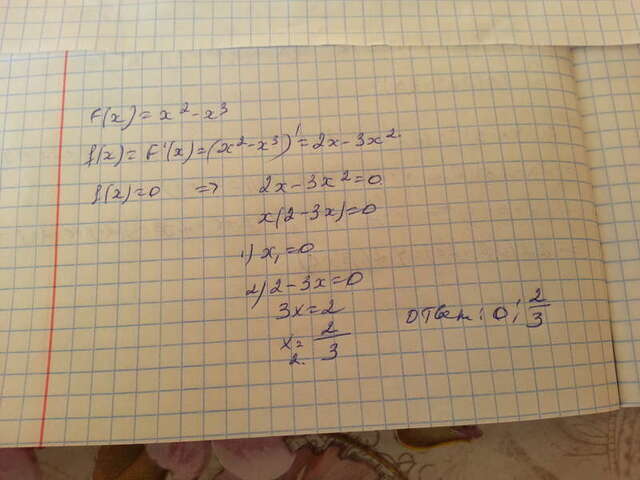 F(x) = x² - x³
f(x) = F'(x) = (x² - x³)' = 2x - 3x²
f(x) = 0 => 2x - 3x² = 0
x(2 - 3x) = 0
1) x₁ = 0
2) 2 - 3x = 0
3x = 2
x₂ = 2/3
Ответ: 0; 2/3